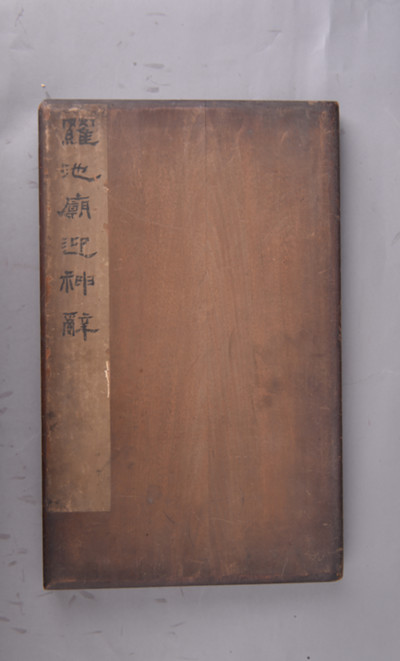 羅池廟迎神辭